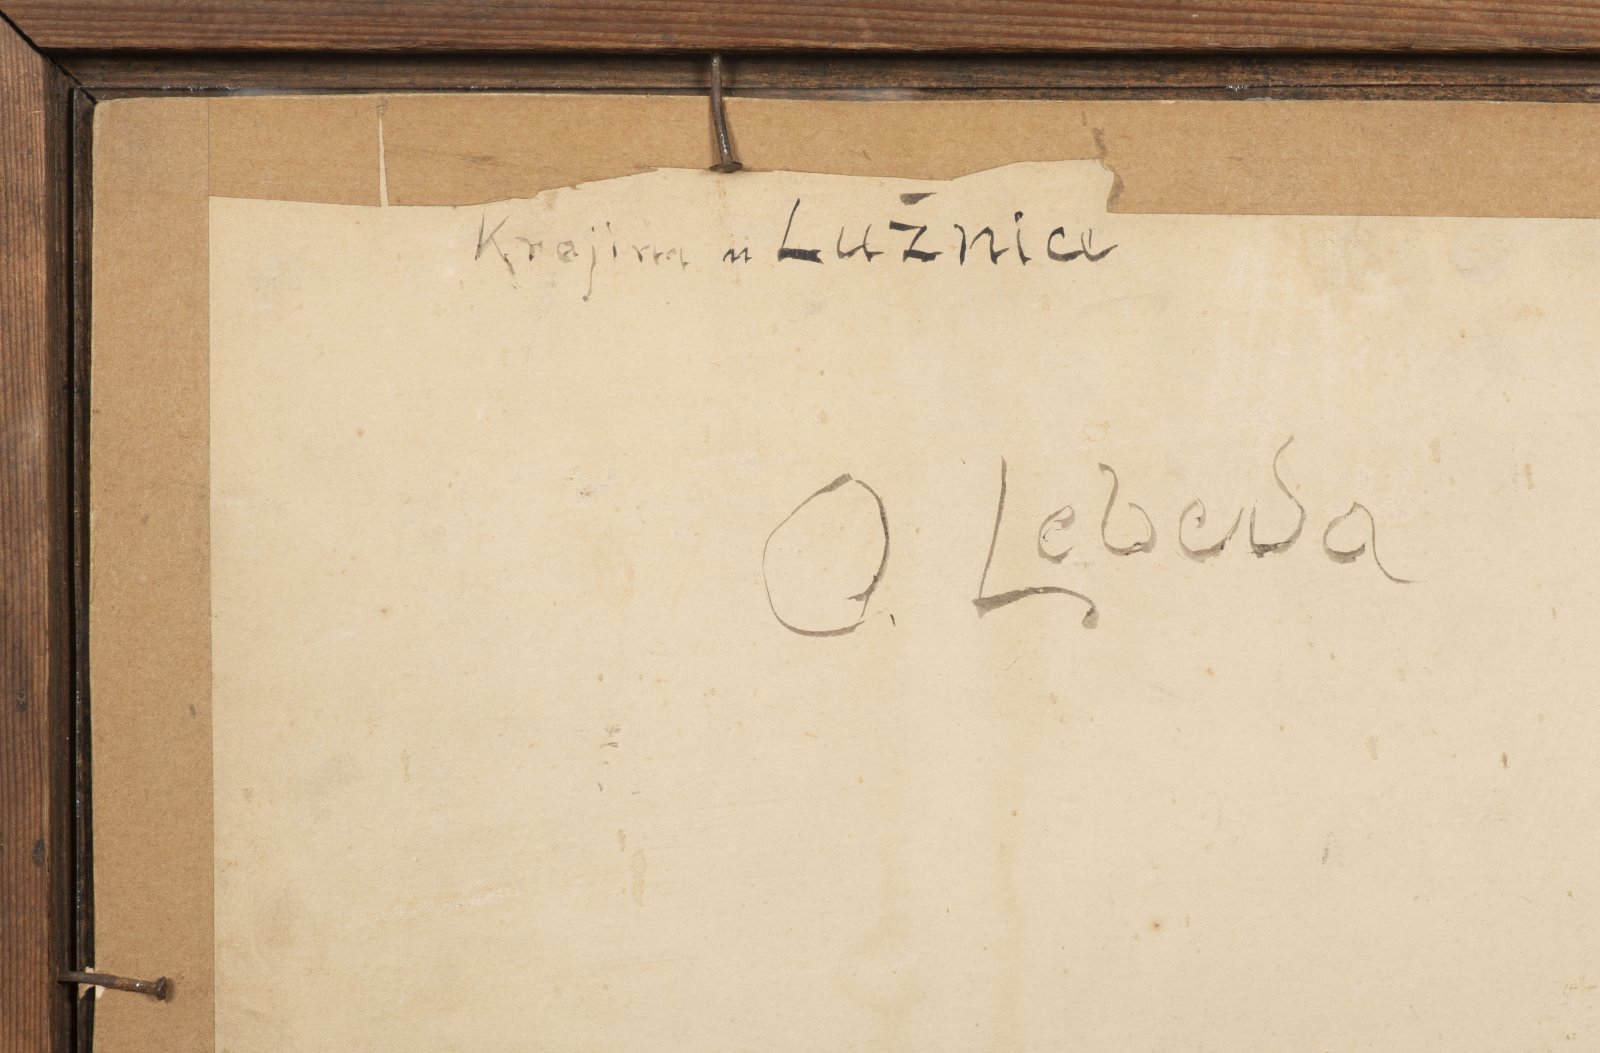 Krajina u Lužnice
O. Lebeda